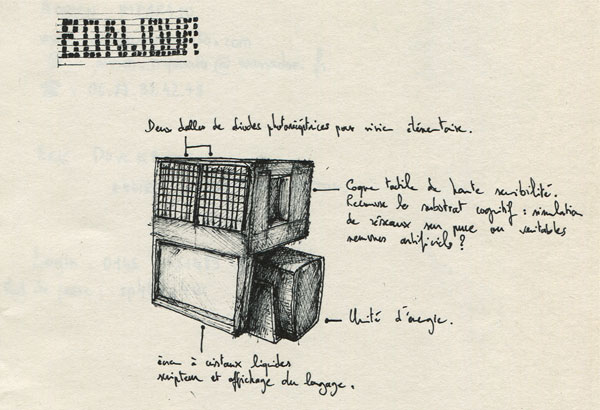 BONJOUR
Deux dalles de diodes photoréceptrices pour vision élémentaire.
Coque tactile de haute sensibilité.
Recouvre le substrat cognitif : simulation
de réseaux sur puce ou véritables
neurones artificiels ?
Unité d'énergie.
écran à cristaux liquides
scripteur et affichage du langage.